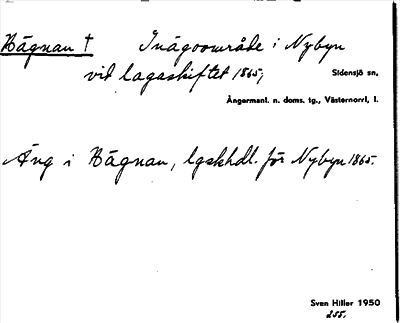 Bägnan † Inägoområde i Nybyn
vid lagaskiftet 1865;
Sidensjö sn,
Ångermanl. n. doms. tg., Västernorrl. l.
Äng i Bägnan, lgskhdl. för Nybyn 1865.
Sven Hiller 1950
255.